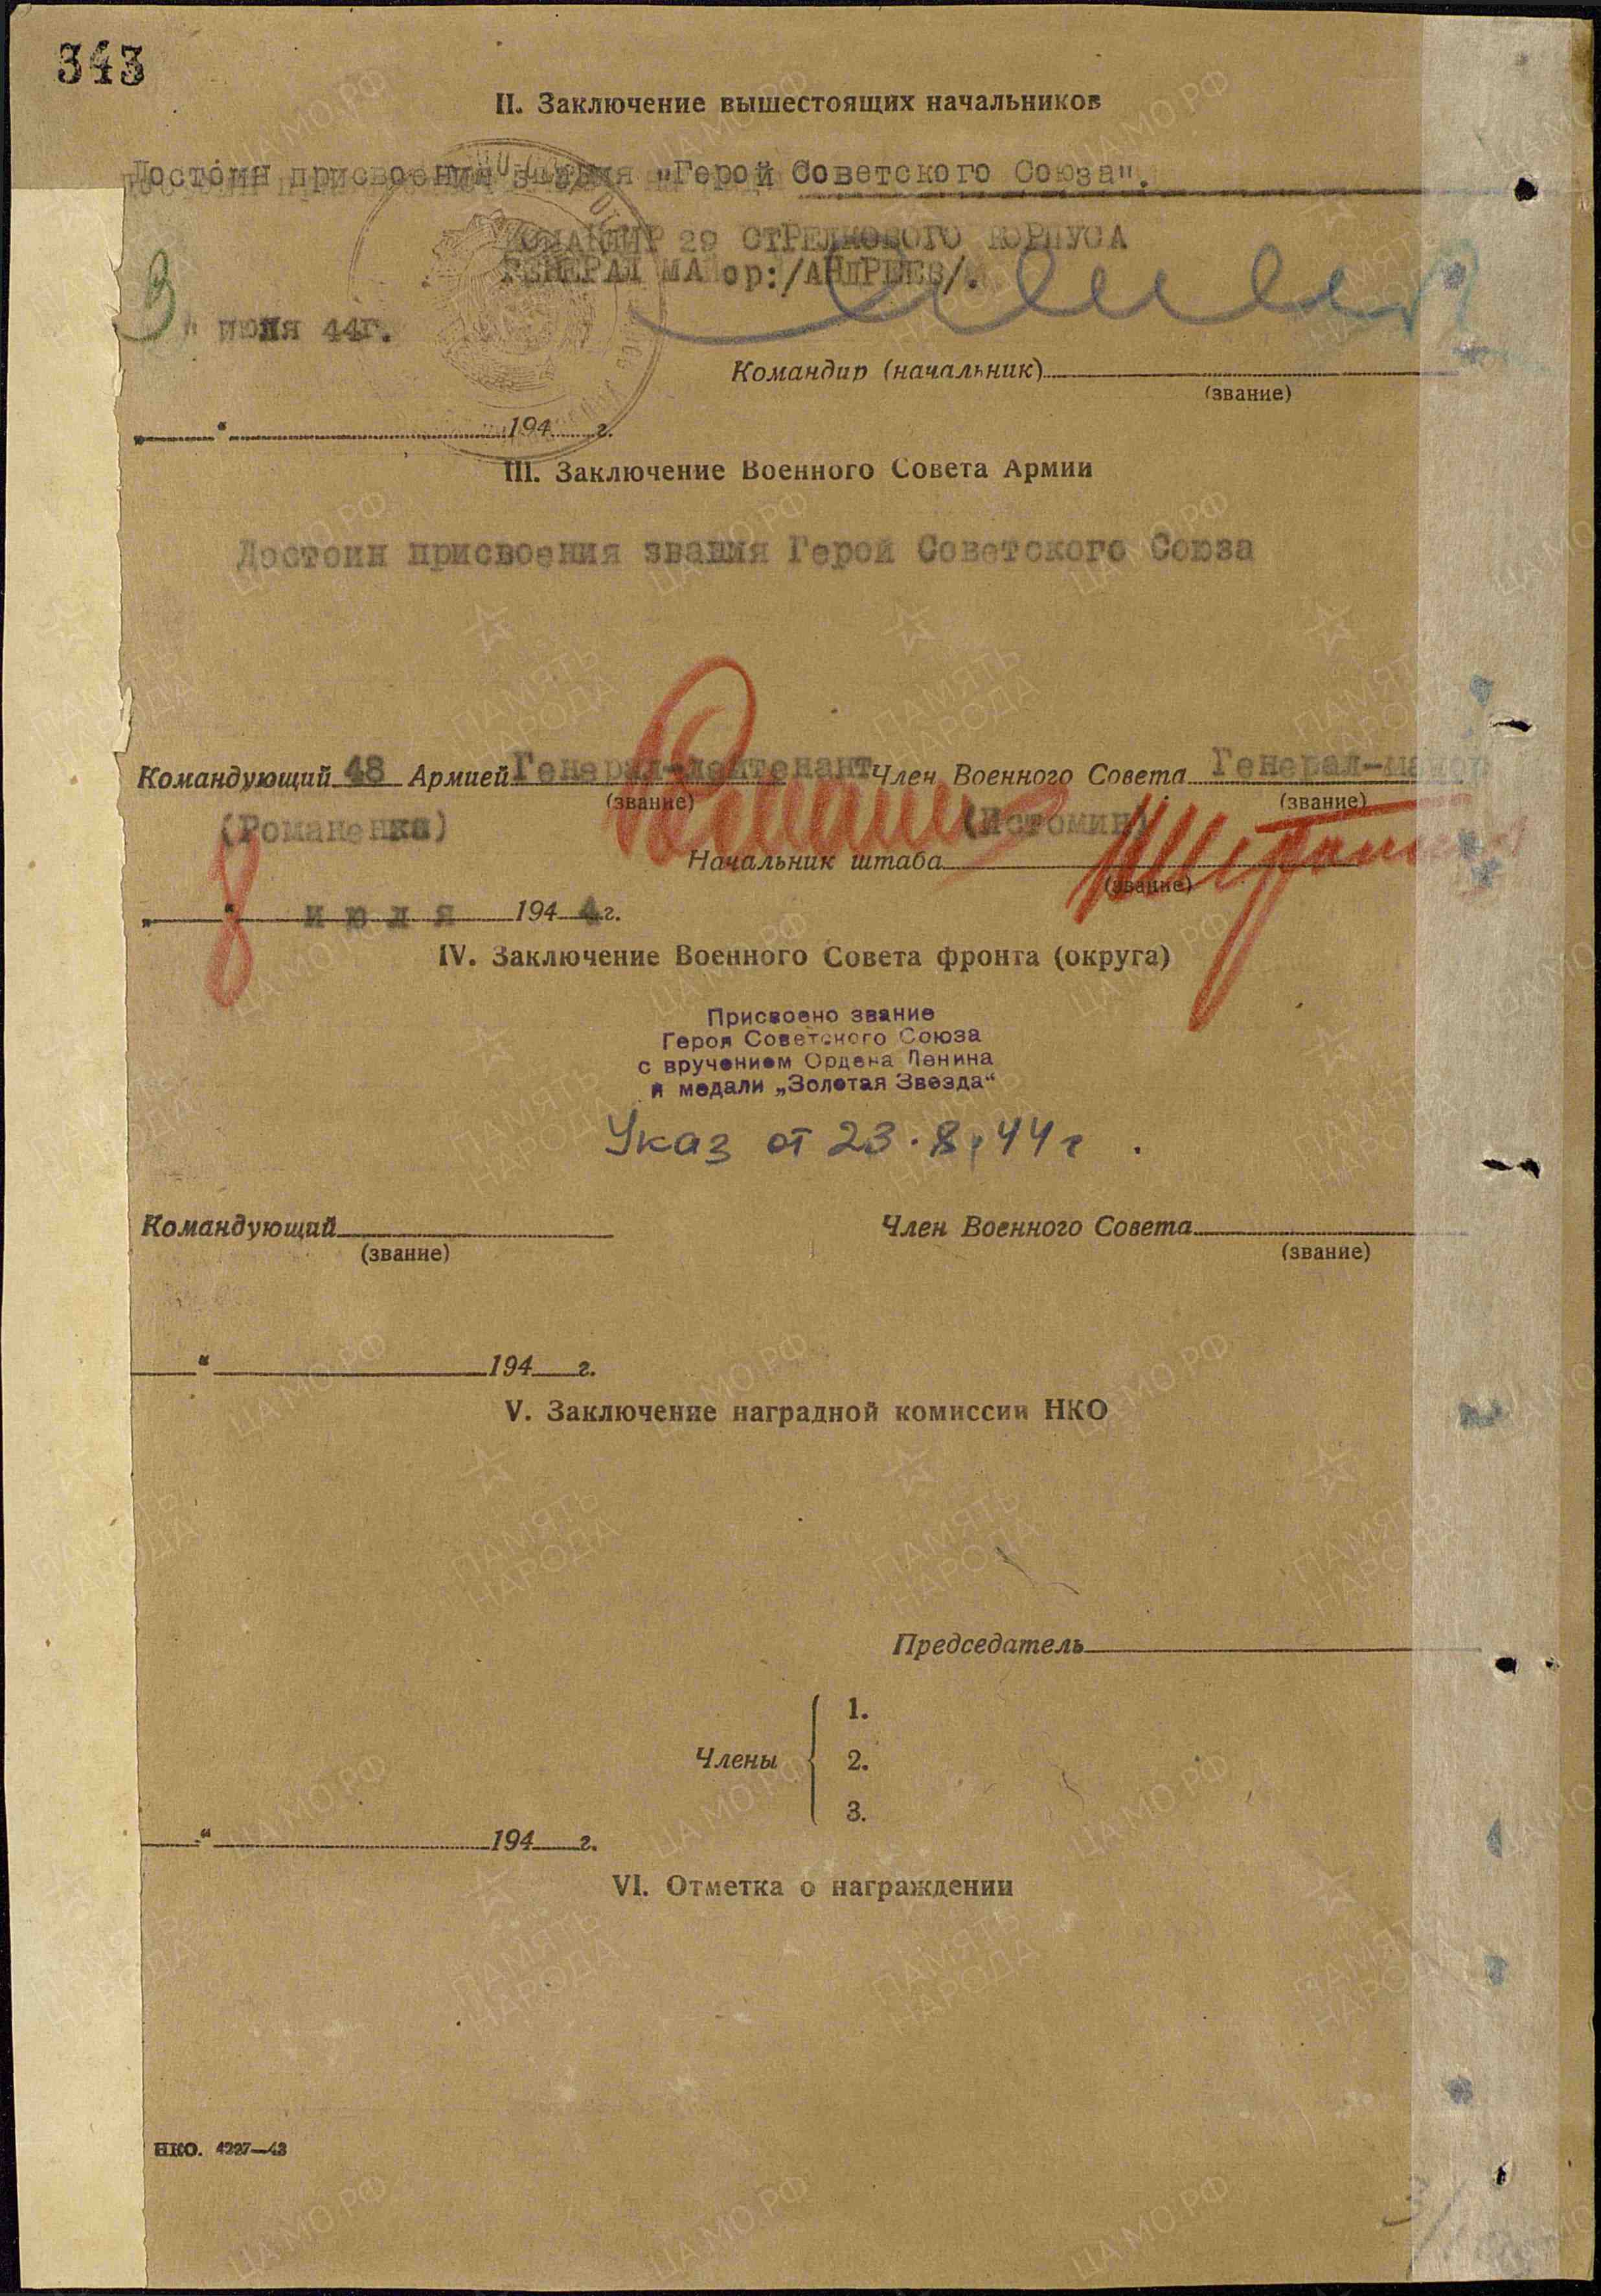 343
II. Заключение вышестоящих начальников
Достоин присвоения звания „Герой Советского Союза".
КОМАНДИР 29 СТРЕЛКОВОГО КОРПУСА
ГЕНЕРАЛ МАйор:/АНДРЕЕВ/.
3 " июля 44г.
Командир (начальник)
(звание)
„ “ 194 г.
III. Заключение Военного Совета Армии
Достоин присвоения звания Герой Советского Союза
Командующий 48 Армией Генерал-лейтенант Член Военного Совета Генерал-майор
(звание) (звание)
(Романенко) (Истомин)
Начальник штаба
(звание)
„8“ июля 194 4 г.
IV. Заключение Военного Совета фронта (округа)
Присвоено звание
Героя Советского Союза
с вручением Ордена Ленина
и медали „Золотая Звезда“
Указ от 23.8.44 г.
Командующий Член Военного Совета
(звание) (звание)
“ 194 г.
V. Заключение наградной комиссии НКО
Председатель
1.
Члены 2.
3.
“ 194 г.
VI. Отметка о награждении
НКО. 4227—43
ПАМЯТЬ НАРОДА
ЦАМО.РФ